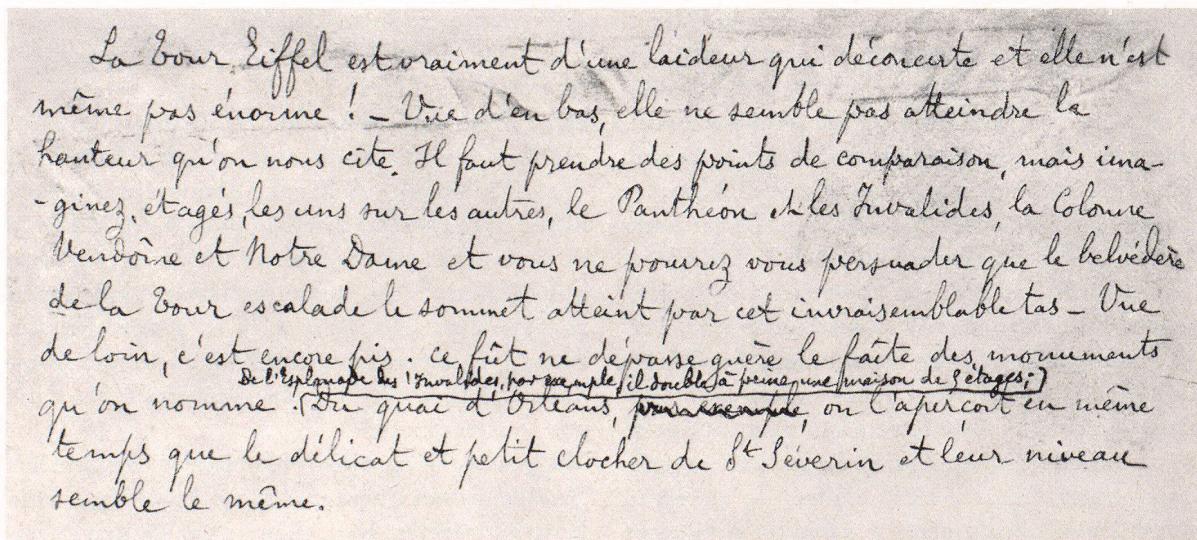 La Tour Eiffel est vraiment d'une laideur qui déconcerte et elle n'est
même pas énorme ! – Vue d'en bas, elle ne semble pas atteindre la
hauteur qu'on nous cite. Il faut prendre des points de comparaison, mais ima-
-ginez, étagés, les uns sur les autres, le Panthéon et les Invalides, la Colonne
Vendôme et Notre Dame et vous ne pourrez vous persuader que le belvédère
de la Tour escalade le sommet atteint par cet invraisemblable tas – Vue
de loin, c'est encore pis. Ce fût ne dépasse guère le faîte des monuments
De l'Esplanade des Invalides, par exemple, il double à peine une maison de 5 étages ;
qu'on nomme. Du quai d'Orléans, par exemple, on l'aperçoit en même
temps que le délicat et petit clocher de St Séverin et leur niveau
semble le même.